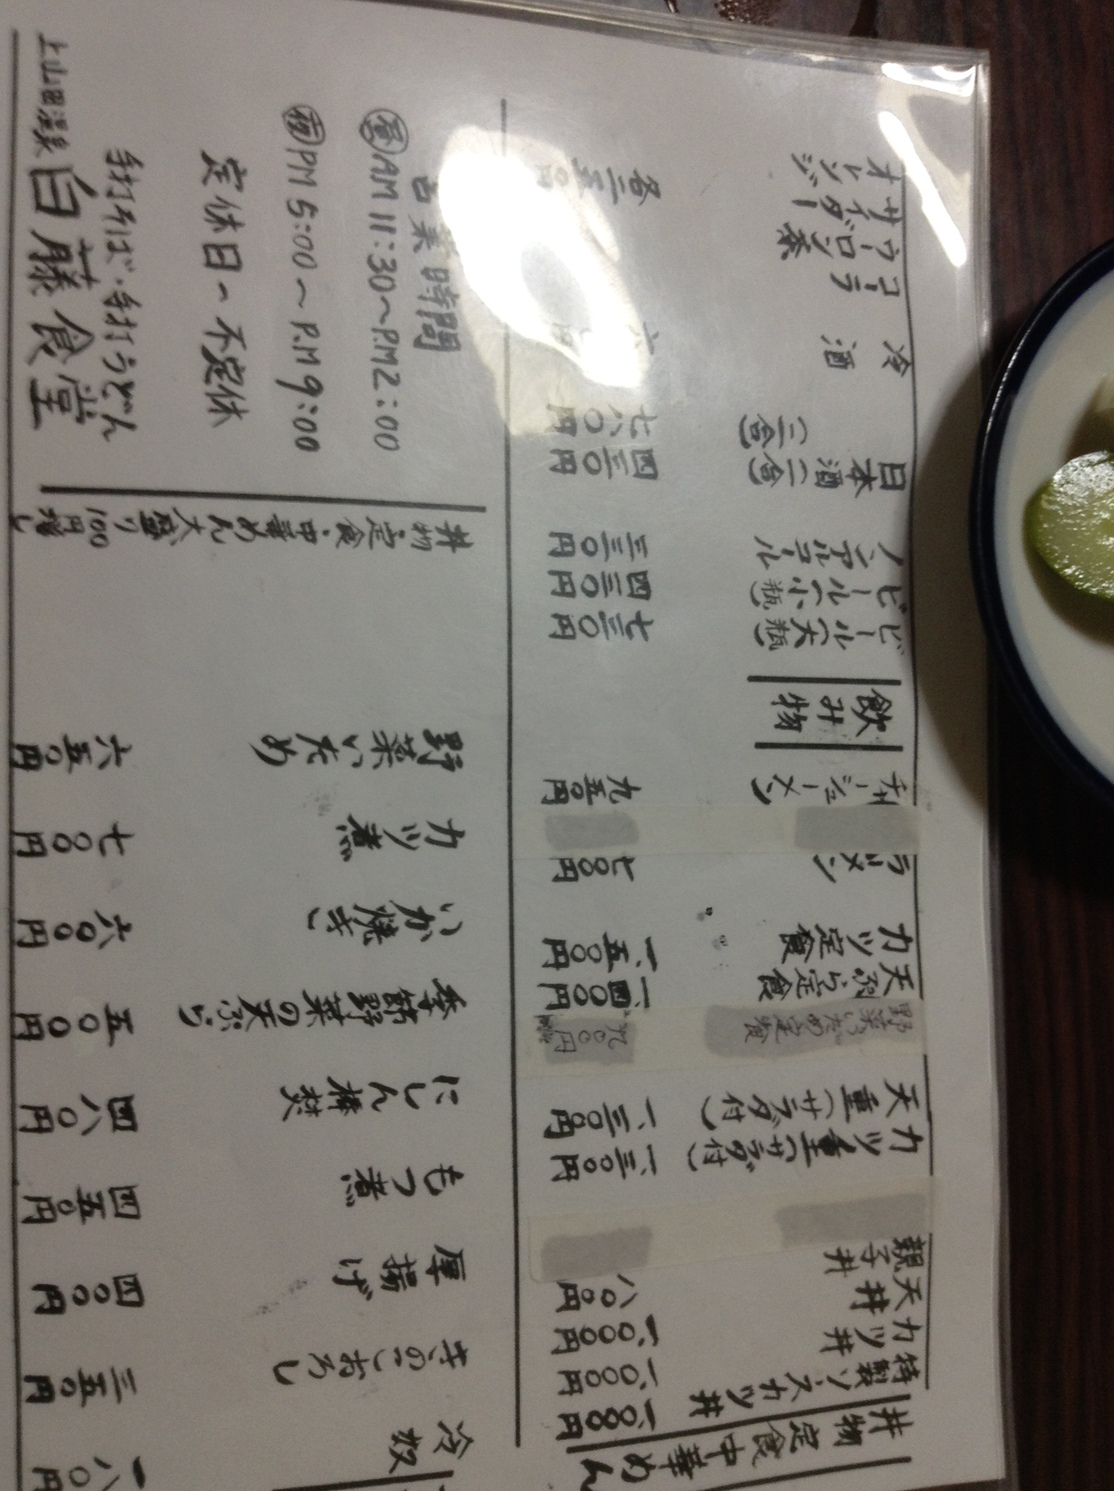 丼物定食中華めん
特製ソースカツ丼 一、一〇〇円
カツ丼 一、〇〇〇円
天丼 一、〇〇〇円
親子丼 八〇〇円
カツ重(サラダ付) 一、三〇〇円
天重(サラダ付) 一、三〇〇円
野菜いため定食 九〇〇円
天ぷら定食 一、四〇〇円
カツ定食 一、一五〇円
ラーメン 七〇〇円
チャーシューメン 九五〇円
飲み物
ビール(大瓶) 七三〇円
ビール(小瓶) 四三〇円
ノンアルコール 三三〇円
日本酒(一合) 四三〇円
(二合) 七八〇円
冷酒
コーラ
ウーロン茶
サイダー
オレンジ
各二五〇円
冷奴 一八〇円
きのこおろし 三五〇円
厚揚げ 四〇〇円
もつ煮 四五〇円
にしん棒焚 四八〇円
季節野菜の天ぷら 五〇〇円
いか焼き 六〇〇円
カツ煮 七〇〇円
野菜いため 六五〇円
丼物・定食・中華めん大盛り100円増し
営業時間
昼AM11:30〜P.M2:00
夜PM5:00〜P.M9:00
定休日〜不定休
手打そば・手打うどん
上山田温泉 白藤食堂